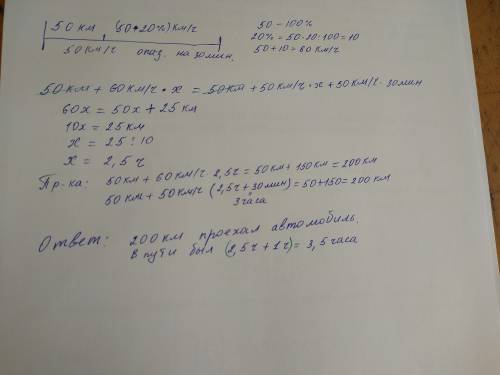 50 км (50+20%) км/ч
50 км/ч опаз. на 30 мин.
50 - 100%
20% = 50·20:100=10
50+10=60 км/ч
50 км + 60 км/ч · x = 50 км + 50 км/ч · x + 50 км/ч · 30 мин
60x = 50x + 25 км
10x = 25 км
x = 25 : 10
x = 2,5 ч
Пр-ка: 50 км + 60 км/ч · 2,5 ч = 50 км + 150 км = 200 км
50 км + 50 км/ч (2,5 ч + 30 мин) = 50 + 150 = 200 км
3 часа
Ответ: 200 км проехал автомобиль.
В пути был (2,5 ч + 1 ч) = 3,5 часа